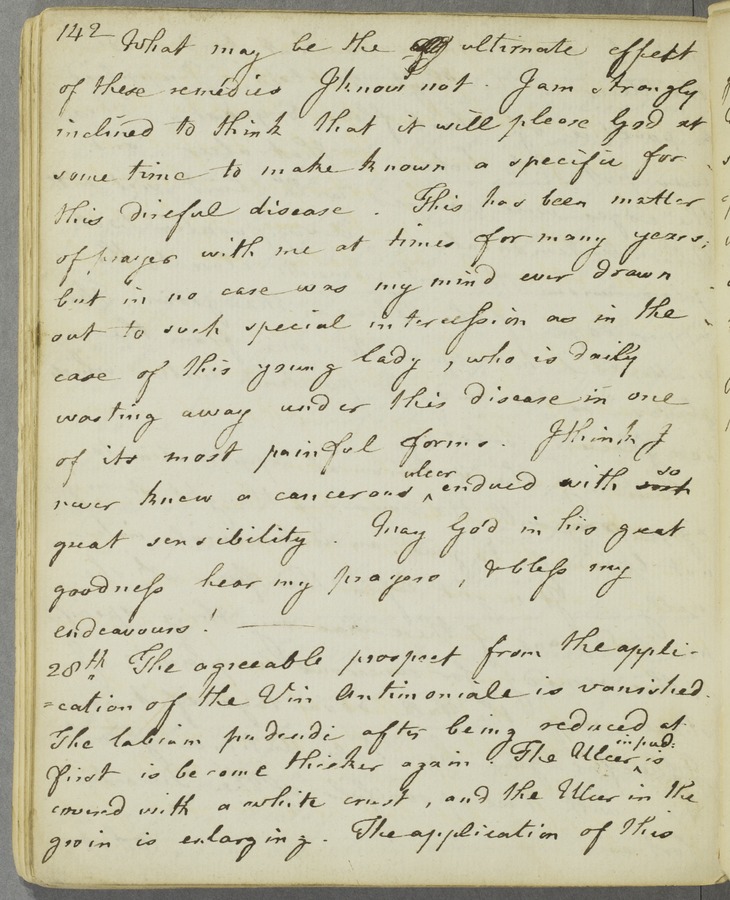 142
What may be the ultimate effect
of these remedies I know not. I am strongly
inclined to think that it will please God at
some time to make known a specific for
this direful disease. This has been matter
of prayer with me at times for many years;
but in no case was my mind ever drawn
out to such special intercession as in the
case of this young lady, who is daily
wasting away under this disease in one
of its most painful forms. I think I
never knew a cancerous ulcer endued with so
great sensibility. May God in his great
goodness hear my prayers, & bless my
endeavours! —
28th The agreeable prospect from the appli-
=cation of the Vin Antimoniale is vanished.
The labium pudendi after being reduced at
first is become thicker again. The Ulcer in pud: is
covered with a white crust, and the Ulcer in the
groin is enlarging. The application of this